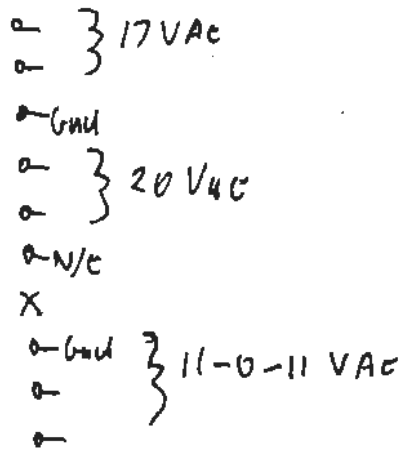 } 17 VAC
Gnd
} 20 VAC
N/C
X
Gnd } 11-0-11 VAC